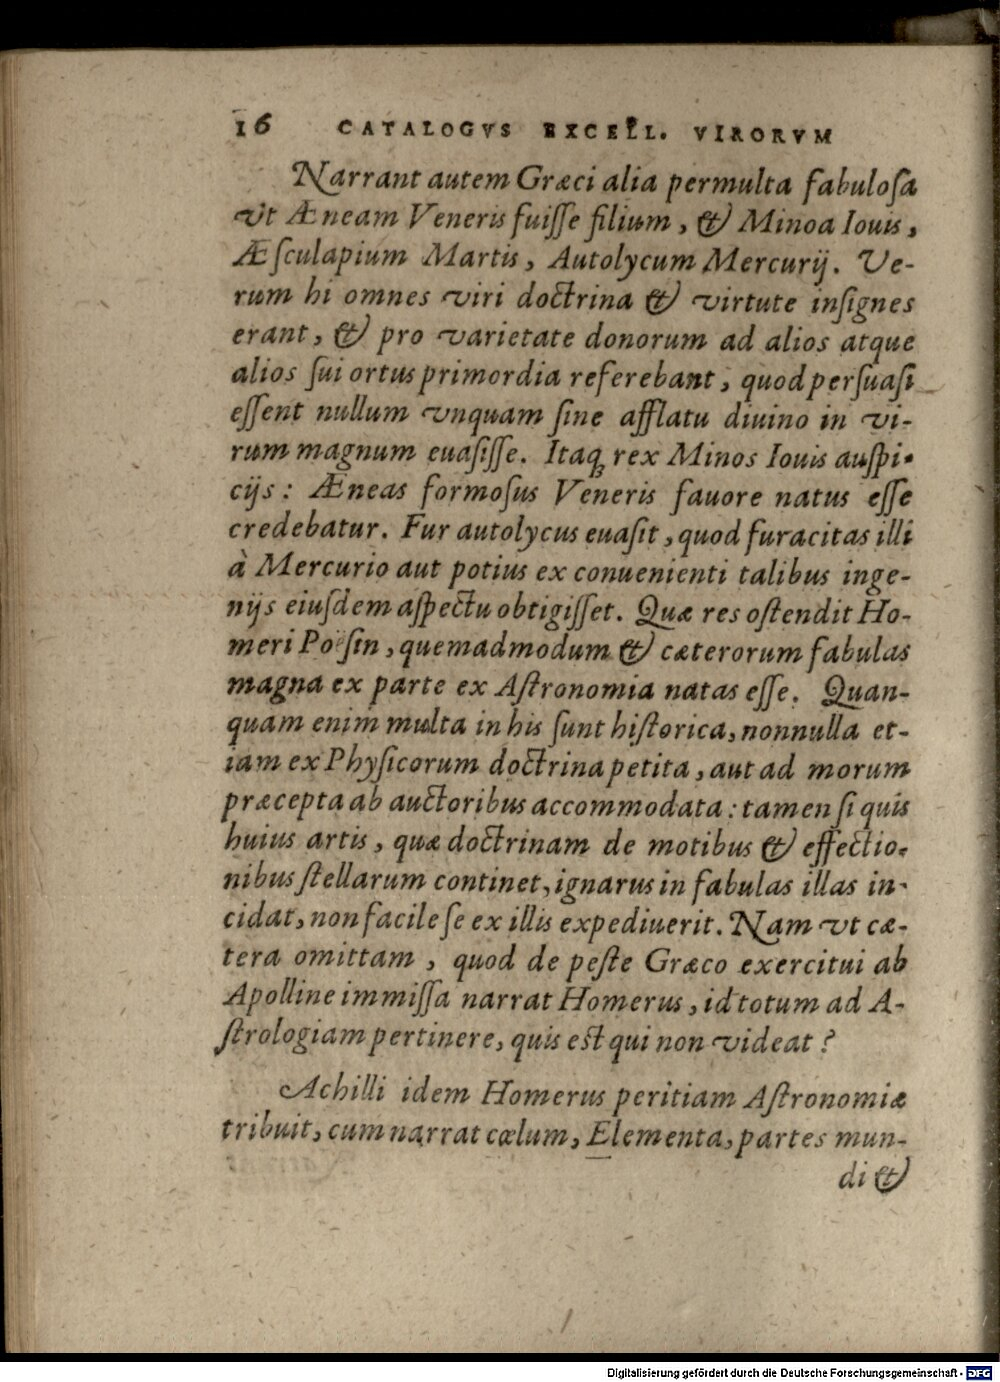 16 CATALOGVS EXCELL. VIRORVM
Narrant autem Græci alia permulta fabuloſa
vt Æneam Veneris fuiſſe filium, & Minoa Iouis,
Æſculapium Martis, Autolycum Mercurij. Ve-
rum hi omnes viri doctrina & virtute inſignes
erant, & pro varietate donorum ad alios atque
alios ſui ortus primordia referebant, quod perſuaſi
eſſent nullum vnquam ſine afflatu diuino in vi-
rum magnum euaſiſſe. Itaqꝫ rex Minos Iouis auſpi-
cijs: Æneas formoſus Veneris fauore natus eſſe
credebatur. Fur autolycus euaſit, quod furacitas illi
à Mercurio aut potius ex conuenienti talibus inge-
nijs eiuſdem aſpectu obtigiſſet. Quæ res oſtendit Ho-
meri Poëſin, quemadmodum & cæterorum fabulas
magna ex parte ex Aſtronomia natas eſſe. Quan-
quam enim multa in his ſunt hiſtorica, nonnulla et-
iam ex Phyſicorum doctrina petita, aut ad morum
præcepta ab auctoribus accommodata: tamen ſi quis
huius artis, quæ doctrinam de motibus & effectio-
nibus ſtellarum continet, ignarus in fabulas illas in-
cidat, non facile ſe ex illis expediuerit. Nam vt cæ-
tera omittam, quod de peſte Græco exercitui ab
Apolline immiſſa narrat Homerus, id totum ad A-
ſtrologiam pertinere, quis eſt qui non videat?
Achilli idem Homerus peritiam Aſtronomiæ
tribuit, cum narrat cœlum, Elementa, partes mun-
di &
Digitalisierung gefördert durch die Deutsche Forschungsgemeinschaft - DFG